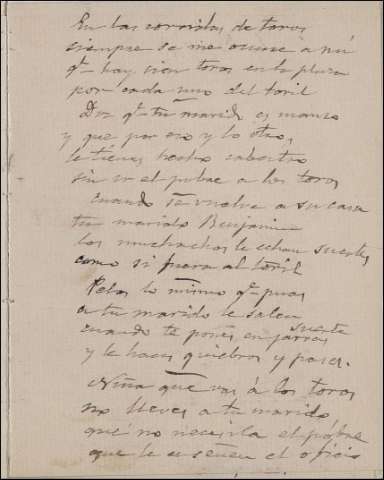 En las corridas de toros
siempre se me ocurre a mí
q.e hay cien toros en la plaza
por cada uno del toril
Dice q.e tu marido es manso
y que por eso y lo otro,
le tienes hecho cabestro
sin ir el pobre a los toros
cuando se vuelve a su casa
tu marido Benjamin
los muchachos le echan suertes,
como si fuera al toril
lo mismo q.e puas
a tu marido le salen
cuando te pones en jarras
suerte
y le haces quiebros y pases.
Niña que vas á los toros
no lleves a tu marido
que no necesita el póbre
que le enseñen el oficio